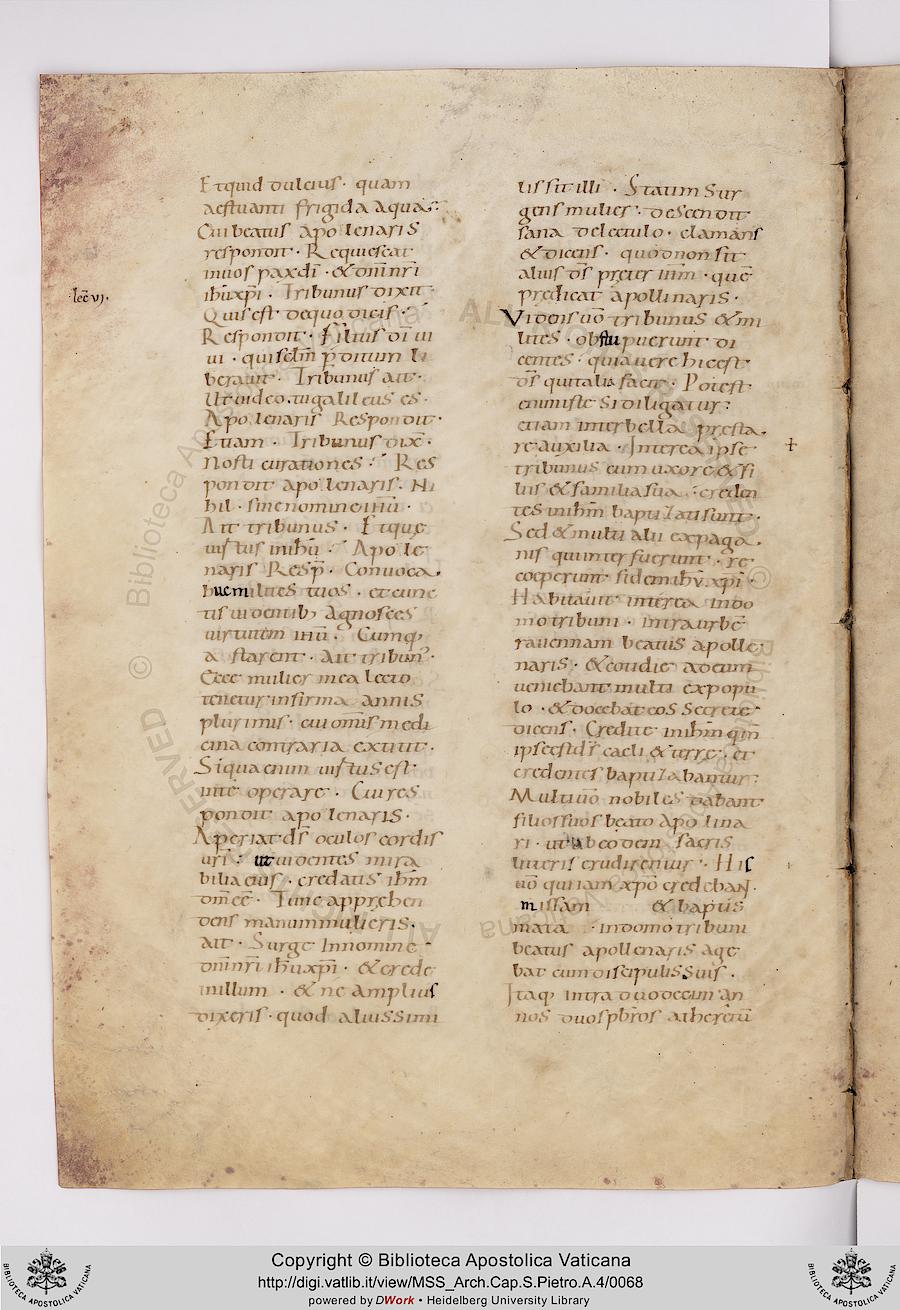 lec̄ vj.
Et quid dulcius · quam
aestuanti frigida aqua:
Cui beatus apollenaris
respondit · Requiescat
in uos pax dī · & dn̄i nr̄i
ih̄u xp̄i · Tribunus dixit ·
Quis est · de quo dicis ·
Respondit · Filius dī ui
ui · qui sclm̄ p̄ditum li
berauit · Tribunus ait ·
Ut uideo · tu galileus es ·
Apollenaris Respondit ·
Etiam · Tribunus dix̄ ·
Nosti curationes · Res
pondit apollenaris · Ni
hil · sine nomine ih̄u ·
Ait tribunus · Et que
uirtus in ih̄u · Apolle
naris Resp̄ · Conuoca ·
huc milites tuos · et cunc
tis uidentib; agnosces
uirtutem ih̄u · Cumq;
astarent · Ait tribun' ·
Ecce mulier mea lecto
tenetur infirma annis
plurimis · cui omīs medi
cina contraria extitit ·
Si qua enim uirtus est ·
in te operare · Cui res
pondit apollenaris ·
Aperiat ds̄ oculos cordis
ur̄i : ut uidentes mira
bilia eius · credatis ih̄m
dm̄ ee · Tunc apprehen
dens manum mulieris ·
ait · Surge In nomine
dn̄i nr̄i ih̄u xp̄i · & crede
in illum · & ne amplius
dixeris · quod alius simi
lis sit illi · Statim Sur
gens mulier · descendit
sana de lectulo · clamans
& dicens · quod non sit
alius ds̄ preter ih̄m · quē
predicat apollinaris ·
Videns uō tribunus & mi
lites · obstupuerunt di
centes · quia uere hic est
ds̄ qui talia facit · Potest
enim iste Si diligatur :
etiam inter bella presta ·
re auxilia · Interea ipse
tribunus cum uxore & fi
liis & familia sua · creden
tes in ih̄m baptizati sunt ·
Sed & multi alii ex paga ·
nis qui interfuerunt · re
coeperunt fidem ih̄u xp̄i ·
Habitauit interea in do
mo tribuni · intra urbē
rauennam beatus apolle
naris · & cotidie ad eum
ueniebant multi ex popu
lo · & docebat eos Secrete
dicens · Credite in ih̄m qm̄
ipse est ds̄ caeli & terre · et
credentes baptizabantur :
Multi uō nobiles dabant
filios suos beato Apollina
ri · ut ab eodem sacris
litteris erudirentur · His
uō qui iam xp̄o credebant ·
missam & baptis
mata · in domo tribuni
beatus apollenaris age
bat cum discipulis Suis ·
Itaq; intra duodecim an
nos duos pbr̄os adhereriū
Copyright © Biblioteca Apostolica Vaticana
http://digi.vatlib.it/view/MSS_Arch.Cap.S.Pietro.A.4/0068
powered by DWork • Heidelberg University Library